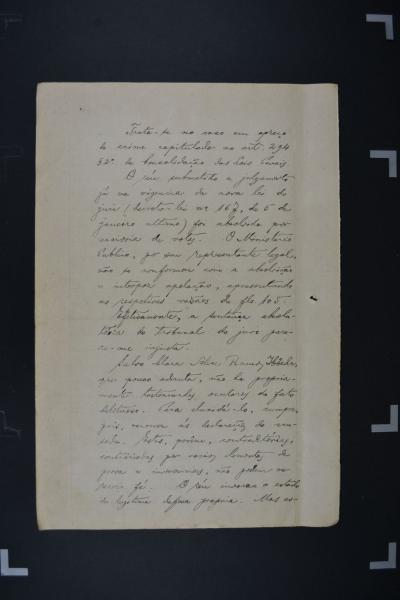 Trata-se no caso em apreço
do crime capitulado no art. 294
§ 2º da Consolidação das Leis Penais.
O réu submetido a julgamento
já na vigencia da nova lei do
juri (decreto-lei nº 167, de 5 de
janeiro ultimo) foi absolvido por
maioria de votos. O Ministerio
Publico, por seu representante legal,
não se conformou com a absolvição
e interpôs apelação, apresentando
as respetivas razões de fls. 105.
Efetivamente, a sentença absolu-
tória do tribunal do juri pare-
ce-me injusta.
Salvo Maria
que pouco adianta, não ha propria-
mente testemunhas oculares do fato
delituoso. Para elucidá-lo, cumpre,
pois, recorrer ás declarações do acu-
sado. Estas, porém, contraditórias,
contrariadas por vários elementos de
prova e inverosimeis, não podem me-
recer fé. O réu invocou o estado
de legitima defesa propria. Mas es-